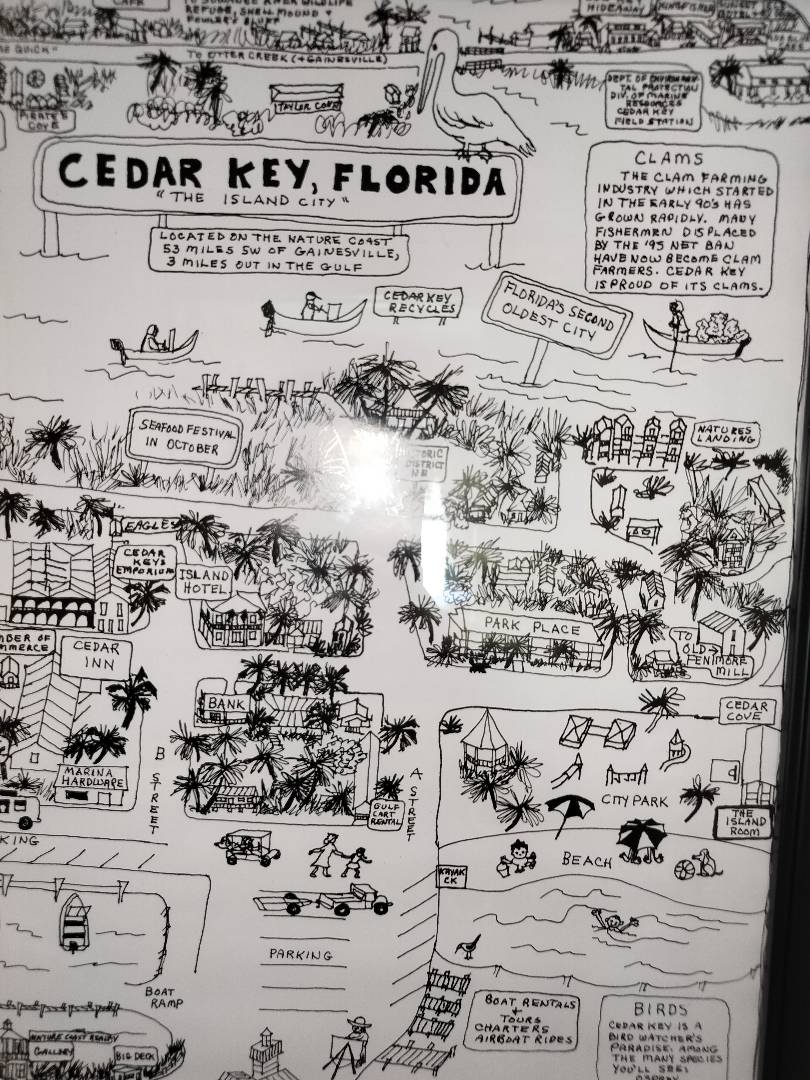 CAFE
TO SUWANEE RIVER WILDLIFE
REFUGE, SHELL MOUND +
FOWLER'S BLUFF
HIDEAWAY
QUICK"
TO OTTER CREEK (+GAINESVILLE)
PIRATE'S
COVE
TAYLOR COVE
DEPT. OF ENVIRONMEN
TAL PROTECTION
DIV. OF MARINE
RESOURCES
CEDAR KEY
FIELD STATION
CEDAR KEY, FLORIDA
"THE ISLAND CITY"
LOCATED ON THE NATURE COAST
53 MILES SW OF GAINESVILLE,
3 MILES OUT IN THE GULF
CLAMS
THE CLAM FARMING
INDUSTRY WHICH STARTED
IN THE EARLY 90'S HAS
GROWN RAPIDLY. MANY
FISHERMEN DISPLACED
BY THE '95 NET BAN
HAVE NOW BECOME CLAM
FARMERS. CEDAR KEY
IS PROUD OF ITS CLAMS.
CEDAR KEY
RECYCLES
FLORIDA'S SECOND
OLDEST CITY
SEAFOOD FESTIVAL
IN OCTOBER
NATURES
LANDING
HISTORIC
DISTRICT
EAGLES
CEDAR
KEYS
EMPORIUM
ISLAND
HOTEL
PARK PLACE
MBER OF
MMERCE
CEDAR
INN
TO
OLD
FENIMORE
MILL
BANK
CEDAR
COVE
MARINA
HARDWARE
B STREET
A STREET
GULF
CART
RENTAL
CITY PARK
THE
ISLAND
ROOM
KING
BEACH
KAYAK
CK
PARKING
BOAT
RAMP
BOAT RENTALS
+
TOURS
CHARTERS
AIRBOAT RIDES
BIRDS
CEDAR KEY IS A
BIRD WATCHER'S
PARADISE. AMONG
THE MANY SPECIES
YOU'LL SEE:
OSPREY
NATURE COAST REALTY
GALLERY
BIG DECK